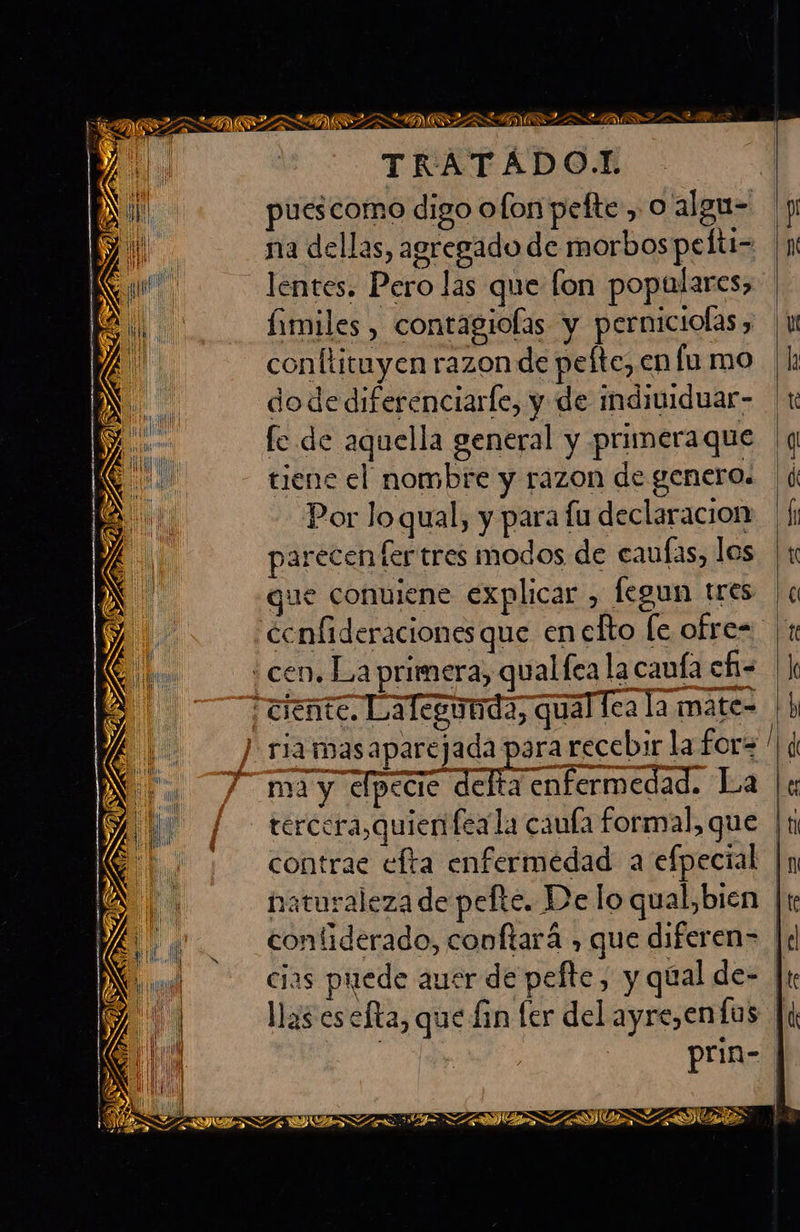 TRATADO.I.
pues como digo o ſon peſte, o algu-
na dellas, agregado de morbos peſti-
lentes. Pero las que ſon populares,
ſimiles, contagioſas y pernicioſas,
conſtituyen razon de peſte, en ſu mo
do de diferenciarſe, y de indiuiduar-
ſe de aquella general y primera que
tiene el nombre y razon de genero.
Por lo qual, y para ſu declaracion
parecen ſer tres modos de cauſas, los
que conuiene explicar, ſegun tres
conſideraciones que en eſto ſe ofre-
cen. La primera, qual ſea la cauſa efi-
ciente. La ſegunda, qual ſea la mate-
ria mas aparejada para recebir la for-
ma y eſpecie deſta enfermedad. La
tercera, quien ſea la cauſa formal, que
contrae eſta enfermedad a eſpecial
naturaleza de peſte. De lo qual, bien
conſiderado, conſtará, que diferen-
cias puede auer de peſte, y qual de-
llas es eſta, que ſin ſer del ayre, en ſus
prin-